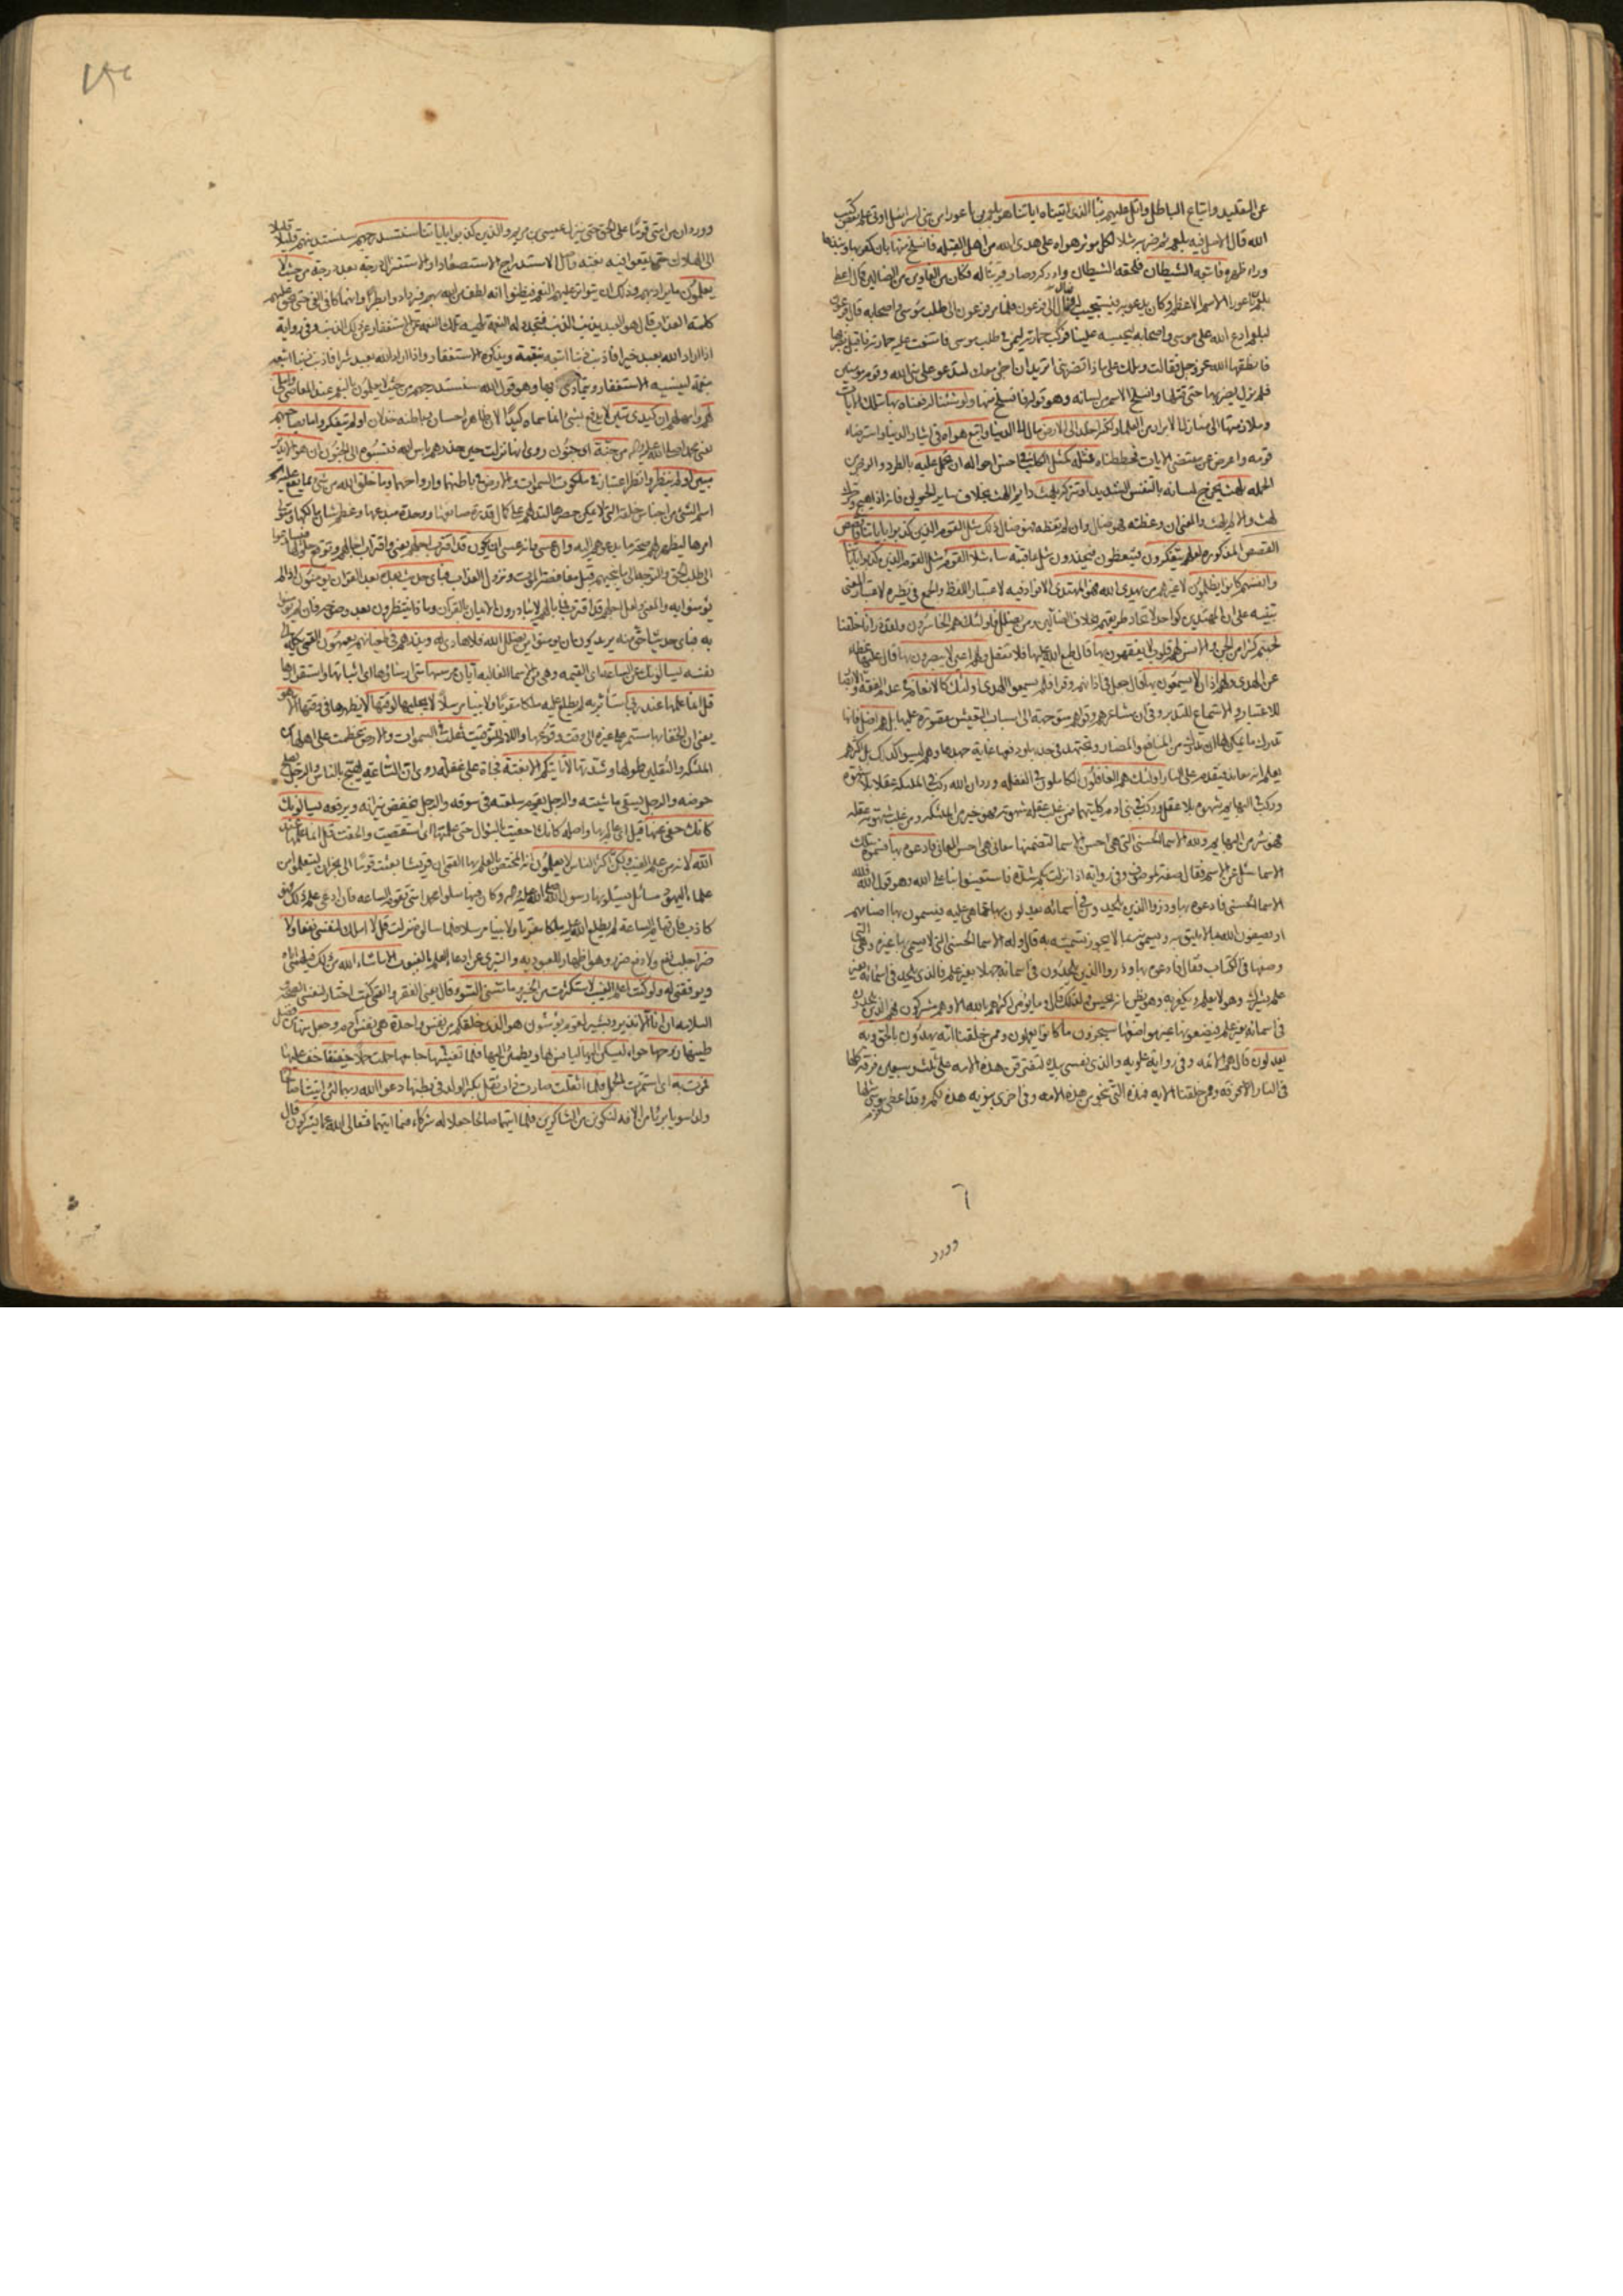 عن التقليد واتباع الباطل واتل عليهم نبأ الذي اتيناه اياتنا هو بلعم بن باعورا من بني اسرائيل اوتي علم بعض كتب
الله قال الاصل فيه بلعم ثم ضربه مثلا لكل مؤثر هواه على هدى الله من اهل القبلة فانسلخ منها بان كفر بها ونبذها
وراء ظهره فاتبعه الشيطان فلحقه الشيطان وادركه وصار قرينا له فكان من الغاوين من الضالين قال اعطي
بلعم بن باعورا الاسم الاعظم وكان يدعو به فيستجيب له فمال الى فرعون فلما مر فرعون في طلب موسى واصحابه قال فرعون
لبلعم ادع الله على موسى واصحابه ليحبسه علينا فركب حمارته ليمر في طلب موسى فامتنعت عليه حمارته فاقبل يضربها
فانطقها الله عز وجل فقالت ويلك على ماذا تضربني اتريد ان اجئ معك لتدعو على نبي الله وقوم مؤمنين
فلم يزل يضربها حتى قتلها وانسلخ الاسم من لسانه وهو قوله فانسلخ منها ولو شئنا لرفعناه بها بتلك الايات
وملازمتها الى منازل الابرار من العلماء ولكنه اخلد الى الارض مال الى الدنيا واتبع هواه في ايثار الدنيا واسترضاء
قومه واعرض عن مقتضى الايات فحططناه فمثله كمثل الكلب في اخس احواله ان تحمل عليه بالطرد والزجر من
الحملة يلهث يخرج لسانه بالتنفس الشديد او تتركه يلهث دايم اللهث بخلاف ساير الحيوان فانه اذا هيج وحرك
لهث والا لم يلهث والمعنى ان وعظته فهو ضال وان لم تعظه فهو ضال ذلك مثل القوم الذين كذبوا باياتنا فاقصص
القصص المذكورة لعلهم يتفكرون فيتعظون فيحذرون مثل عاقبته ساء مثلا القوم مثل القوم الذين كذبوا باياتنا
وانفسهم كانوا يظلمون لا غيرهم من يهدي الله فهو المهتدي الافراد فيه لاعتبار اللفظ والجمع في نظيره لاعتبار المعنى
تنبيه على ان المهتدين كواحد لاتحاد طريقتهم بخلاف الضالين ومن يضلل فاولئك هم الخاسرون ولقد ذرانا خلقنا
لجهنم كثيرا من الجن والانس لهم قلوب لا يفقهون بها قال طبع الله عليها فلا تعقل ولهم اعين لا يبصرون بها قال عليها غطاء
عن الهدى ولهم اذان لا يسمعون بها قال جعل في اذانهم وقرا فلم يسمعوا الهدى اولئك كالانعام في عدم الفقه والابصار
للاعتبار والاستماع للتدبر وفي ان مشاعرهم وقواهم متوجهة الى اسباب التعيش مقصورة عليها بل هم اضل فانها
تدرك ما يمكن لها ان تدرك من المنافع والمضار وتجتهد في جذبها ودفعها غاية جهدها وهم ليسوا كذلك بل اكثرهم
يعلم انه معاند فيقدم على النار اولئك هم الغافلون الكاملون في الغفلة ورد ان الله ركب في الملئكة عقلا بلا شهوة
وركب في البهايم شهوة بلا عقل وركب في بني ادم كليتهما فمن غلب عقله شهوته فهو خير من الملئكة ومن غلب شهوته عقله
فهو شر من البهايم ولله الاسماء الحسنى التي هي احسن الاسماء لتضمنها معاني هي احسن المعاني فادعوه بها فسموه بتلك
الاسماء سئل عن الاسم فقال صفة لموصوف وفي رواية اذا نزلت بكم شدة فاستعينوا بنا على الله وهو قول الله ولله
الاسماء الحسنى فادعوه بها وذروا الذين يلحدون في اسمائه يعدلون بها عما هي عليه فيسمون بها اصنامهم
او يصفون الله بما لا يليق به ويسمونه بما لا يجوز تسميته به قال وله الاسماء الحسنى التي لا يسمى بها غيره وهي التي
وصفها في الكتاب فقال فادعوه بها وذروا الذين يلحدون في اسمائه جهلا بغير علم فالذي يلحد في اسمائه بغير
علم يشرك وهو لا يعلم ويكفر به وهو يظن انه يحسن فلذلك قال وما يؤمن اكثرهم بالله الا وهم مشركون فهم الذين يلحدون
في اسمائه بغير علم فيضعونها غير مواضعها سيجزون ما كانوا يعملون وممن خلقنا امة يهدون بالحق وبه
يعدلون قال هم الائمة وفي رواية علوية والذي نفسي بيده لتفترقن هذه الامة على ثلث وسبعين فرقة كلها
في النار الا فرقة وممن خلقنا الاية فهذه التي تنجو من هذه الامة وفي اخرى نبوية هذه لكم وقد اعطي قوم موسى مثلها
وورد
وورد ان من امتي قوما على الحق حتى ينزل عيسى بن مريم والذين كذبوا باياتنا سنستدرجهم سنستدنيهم قليلا قليلا
الى الهلاك حتى يقعوا فيه بغتة واصل الاستدراج الاستصعاد او الاستنزال درجة بعد درجة من حيث لا
يعلمون ما يراد بهم وذلك ان يتواتر عليهم النعم فيظنوا انه لطف من الله بهم فيزدادوا بطرا وانهماكا في الغي حتى يحق عليهم
كلمة العذاب قال هو العبد يذنب الذنب فتجدد له النعمة تلهيه تلك النعمة عن الاستغفار عن ذلك الذنب وفي رواية
اذا اراد الله بعبد خيرا فاذنب ذنبا اتبعه بنقمة ويذكره الاستغفار واذا اراد الله بعبد شرا فاذنب ذنبا اتبعه
بنعمة لينسيه الاستغفار ويتمادى بها وهو قول الله سنستدرجهم من حيث لا يعلمون بالنعم عند المعاصي واملي
لهم وامهلهم ان كيدي متين لا يدفع بشئ انما سماه كيدا لان ظاهره احسان وباطنه خذلان اولم يتفكروا ما بصاحبهم
يعني محمدا صلى الله عليه واله من جنة اي جنون روي انها نزلت حين حذرهم باس الله فنسبوه الى الجنون ان هو الا نذير
مبين اولم ينظروا نظر اعتبار في ملكوت السموات والارض في باطنهما وارواحهما وما خلق الله من شئ مما يقع عليه
اسم الشئ من اجناس خلقه التي لا يمكن حصرها لتدلهم على كمال قدرة صانعها ووحدة مبدعها وعظم شان مالكها ومتولي
امرها ليظهر لهم صحة ما يدعوهم اليه وان عسى وانه عسى ان يكون قد اقترب اجلهم يعني واقتراب اجالهم وتوقع حلولها فيسارعوا
الى طلب الحق والتوجه الى ما ينجيهم قبل مغافصة الموت ونزول العذاب فباي حديث بعده بعد القران يؤمنون اذا لم
يؤمنوا به والمعنى ولعل اجلهم قد اقترب فما بالهم لا يبادرون الايمان بالقران وماذا ينتظرون بعد وضوحه فان لم يؤمنوا
به فباي حديث احق منه يريدون ان يؤمنوا من يضلل الله فلا هادي له ويذرهم في طغيانهم يعمهون
يسالونك عن الساعة اي القيمة وهي من الاسماء الغالبة ايان مرساها متى ارساؤها اي اثباتها واستقرارها
قل انما علمها عند ربي استاثر به لم يطلع عليه ملكا مقربا ولا نبيا مرسلا لا يجليها لوقتها لا يظهرها في وقتها الا هو
يعني ان الخفاء بها مستمر على غيره الى وقت وقوعها واللام للتوقيت ثقلت في السموات والارض عظمت على اهلها من
الملئكة والثقلين لهولها وشدتها لا تاتيكم الا بغتة فجاة على غفلة روي ان الساعة تهيج بالناس والرجل يصلح
حوضه والرجل يسقي ماشيته والرجل يقوم سلعته في سوقه والرجل يخفض ميزانه ويرفعه يسالونك
كانك حفي عنها قيل اي عالم بها واصله كانك حفيت بالسؤال حتى علمتها اي استقصيت والحفت قل انما علمها عند
الله لانه من علم الغيب ولكن اكثر الناس لا يعلمون انه المختص بالعلم بها القمي ان قريشا بعثت قوما الى نجران ليتعلموا من
علماء اليهود مسائل يسئلونها رسول الله صلى الله عليه واله وكان فيها سلوا محمدا متى تقوم الساعة فان ادعى علم ذلك فهو
كاذب فان قيام الساعة لم يطلع الله عليه ملكا مقربا ولا نبيا مرسلا فلما سالوه نزلت قل لا املك لنفسي نفعا ولا
ضرا جلب نفع ولا دفع ضرر وهو اظهار للعبودية والتبري عن ادعاء العلم بالغيوب الا ما شاء الله من ذلك فيلهمني اياه
ويوفقني له ولو كنت اعلم الغيب لاستكثرت من الخير وما مسني السوء قال يعني الفقر والقمي كنت اختار لنفسي الصحة
والسلامة ان انا الا نذير وبشير لقوم يؤمنون هو الذي خلقكم من نفس واحدة هي نفس ادم وجعل منها من فضل
طينها زوجها حواء ليسكن اليها ليانس بها ويطمئن اليها فلما تغشيها جامعها حملت حملا خفيفا خف عليها
فمرت به اي استمرت بالحمل فلما اثقلت صارت ذات ثقل بكبر الولد في بطنها دعوا الله ربهما لئن اتيتنا صالحا
ولدا سويا بريئا من الافة لنكونن من الشاكرين فلما اتيهما صالحا جعلا له شركاء فيما اتيهما فتعالى الله عما يشركون قال